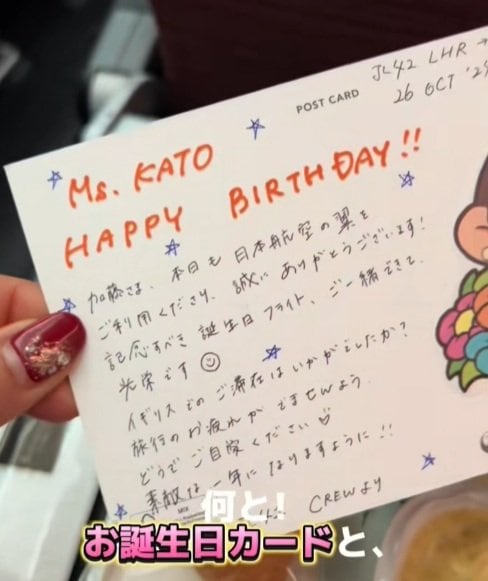 JL42 LHR →
26 OCT '24
POST CARD
Ms. KATO
HAPPY BIRTHDAY!!
加藤さま、本日も日本航空の翼を
ご利用くださり、誠にありがとうございます!
記念すべき誕生日フライト、ご一緒できて、
光栄です ☺
イギリスでのご滞在はいかがでしたか?
旅行のお疲れがでませんよう、
どうぞご自愛ください♡
素敵な一年になりますように!!
CREWより
何と!
お誕生日カードと、